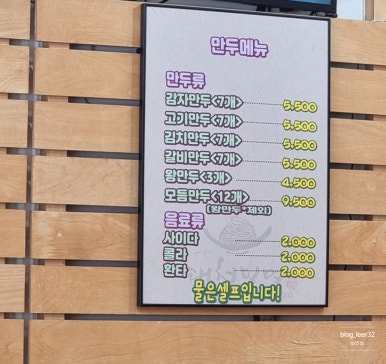 만두메뉴
만두류
감자만두<7개> 5.500
고기만두<7개> 5.500
김치만두<7개> 5.500
갈비만두<7개> 5.500
왕만두<3개> 4.500
모듬만두<12개> 9.500
(왕만두*제외)
음료류
사이다 2.000
콜라 2.000
환타 2.000
물은셀프입니다!
blog_leer32